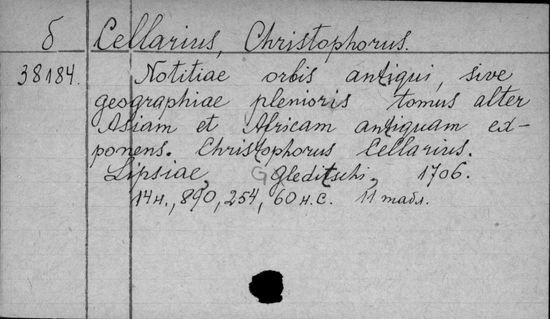 б Cellarius, Christophorus.
38184. Notitiae orbis antiqui, sive
geographiae plenioris tomus alter
Asiam et Africam antiquam ex-
ponens. Christophorus Cellarius.
Lipsiae, Gleditschi, 1706.
14 н., 890, 254, 60 н.с. 11 табл.